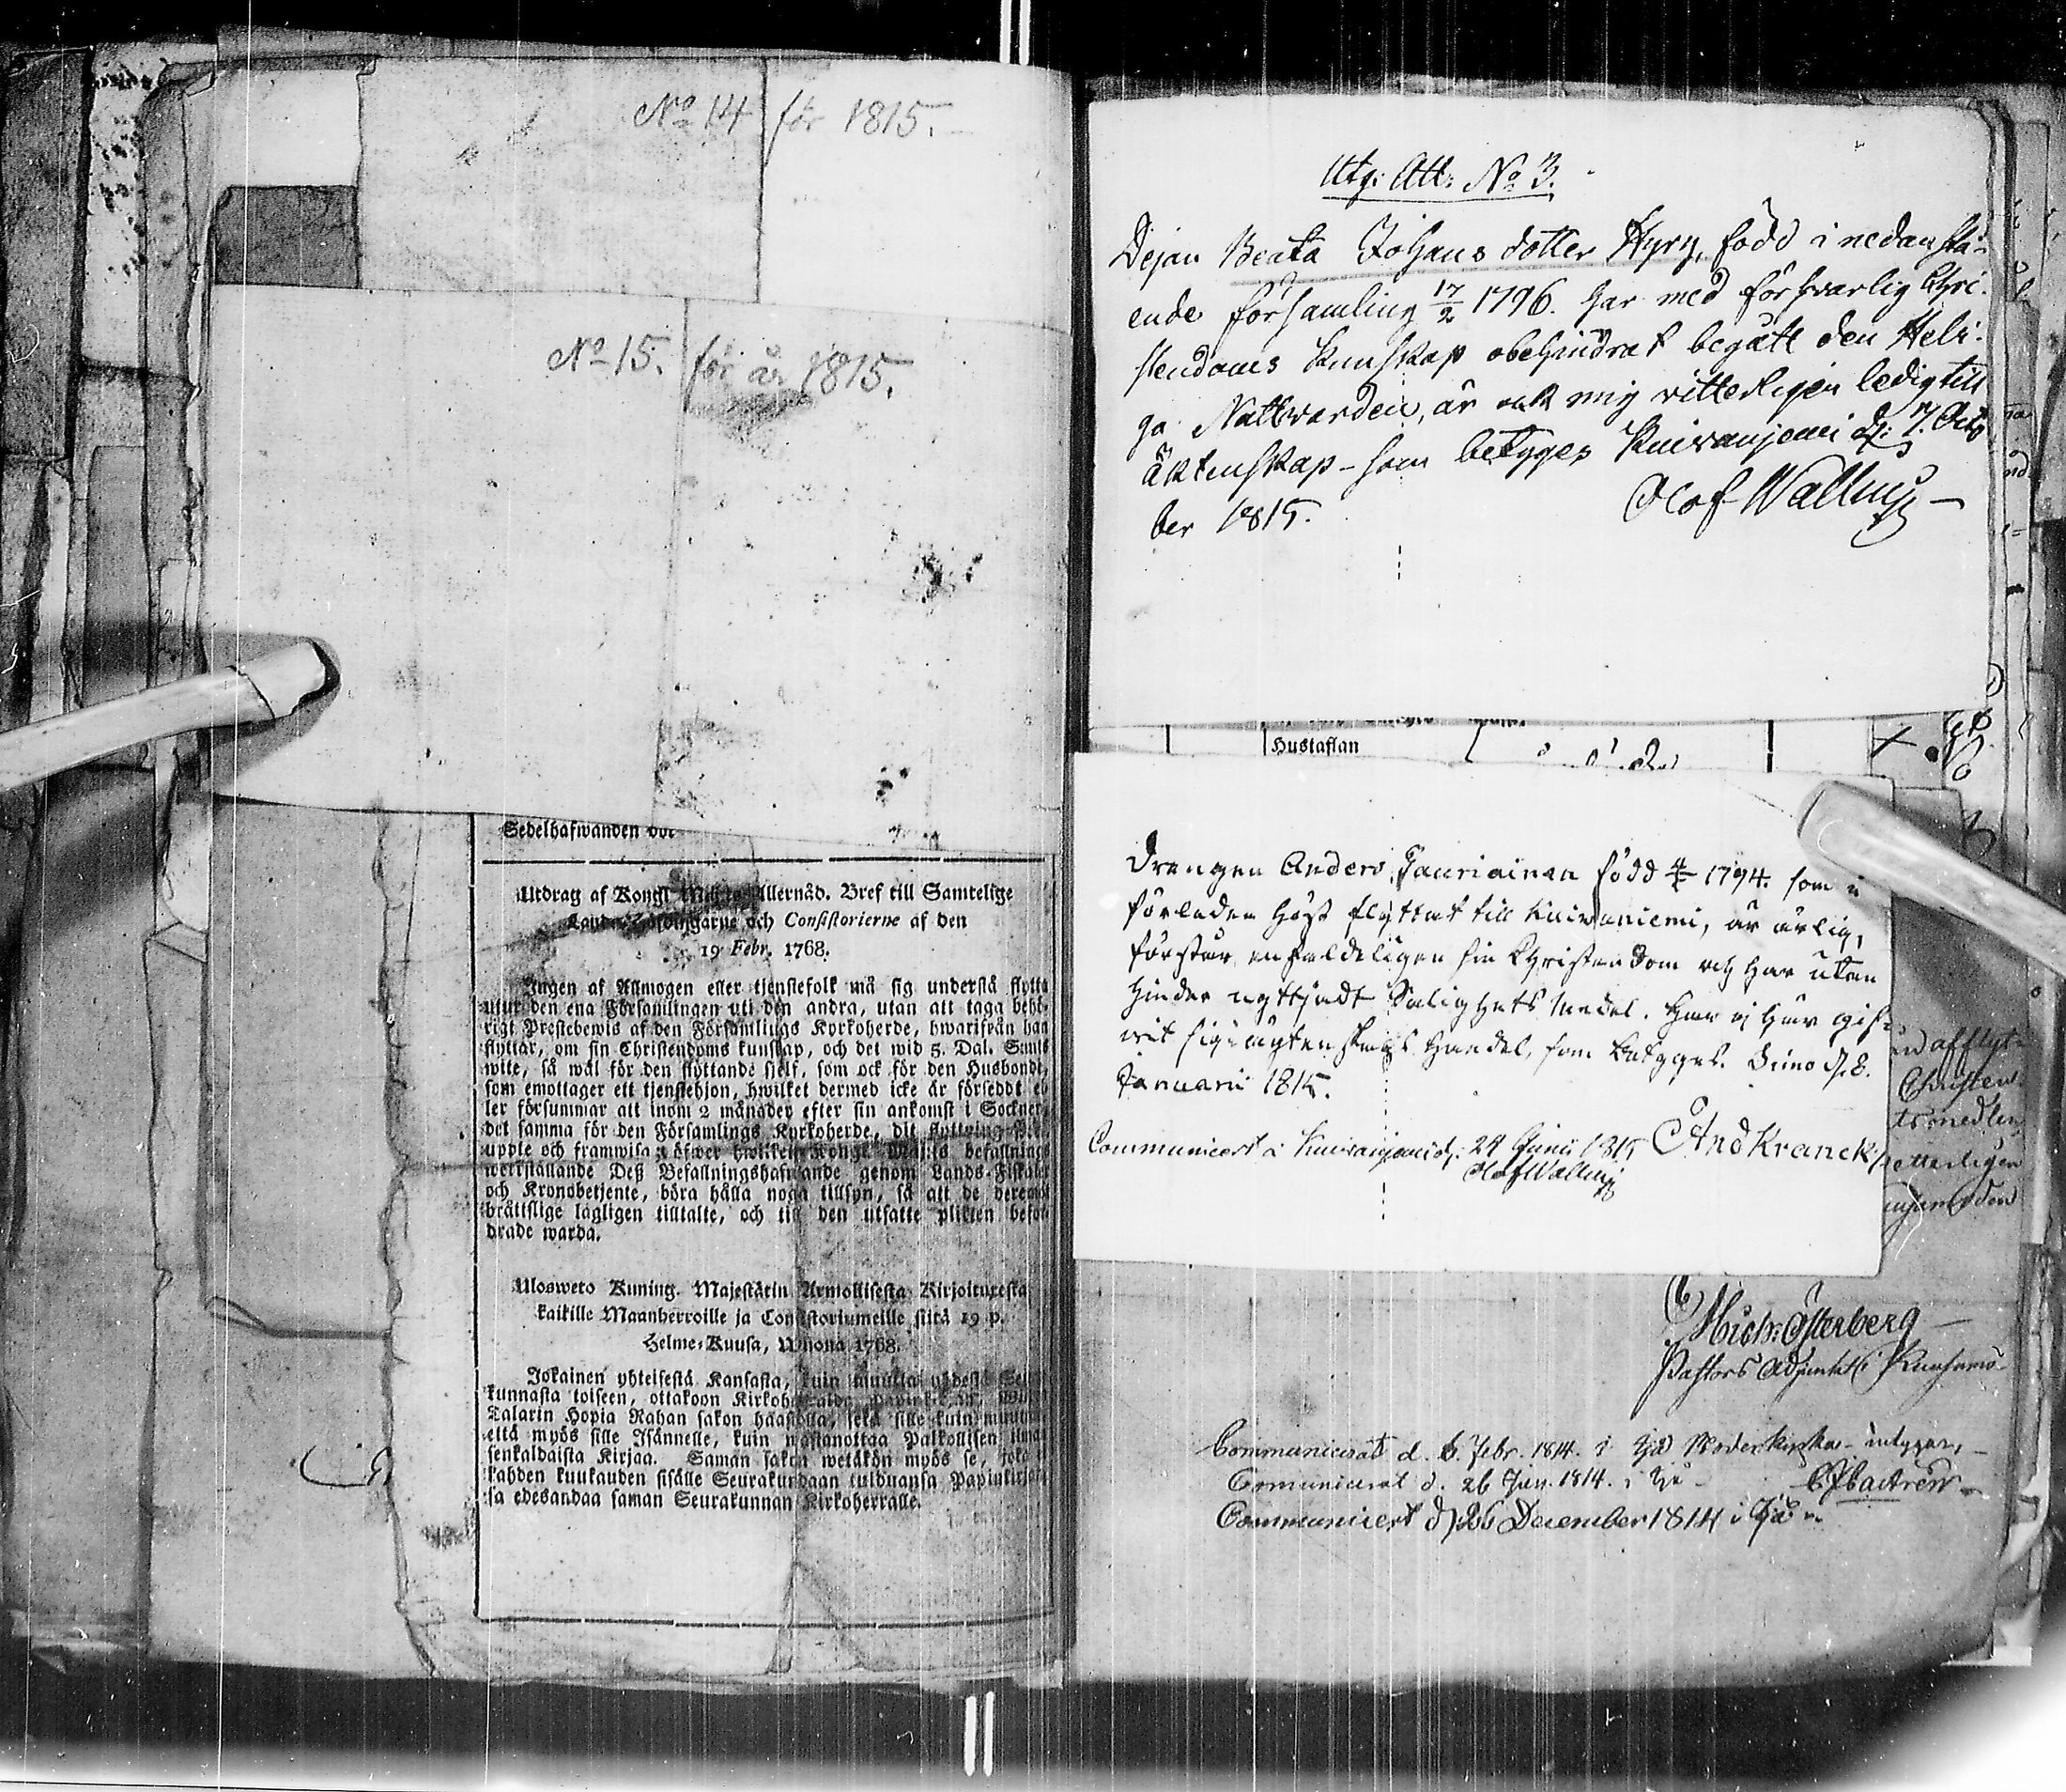 No 14 för 1815.
No 15. för år 1815.
Sedelhafwanden
Utdrag af Kongl Maj:ts Allernåd. Bref till Samtelige
Lands-Höfdingarne och Consistorierne af den
19 Febr. 1768.
Ingen af Allmogen eller tjenstefolk må sig understå flytta
utur den ena Församlingen uti den andra, utan att taga behö-
rigt Prestebewis af den Församlings Kyrkoherde, hwarifrån han
flyttar, om sin Christendoms kunskap, och det wid 5. Dal. Smts
wite, så wäl för den flyttande sjelf, som ock för den Husbonde,
som emottager ett tjenstehjon, hwilket dermed icke är försedt el
ler försummar att inom 2 månader efter sin ankomst i Socknen
det samma för den Församlings Kyrkoherde, dit flyttning
uppte och framwisa; öfwer hwilken Kongl Maj:ts befallning
werkställande Deß Befallningshafwande genom Lands-Fiskaler
och Kronobetjente, böra hålla noga tillsyn, så att de deremot
brättslige lagligen tilltalte, och till den utsatte plikten befor
drade warda.
Ulosweto Kuning. Majestätin Armollisesta Kirjoituxesta
kaikille Maanherroille ja Consistoriumeille siitä 19 p.
Helme-Kuusa, Wuona 1768.
Jokainen yhteisestä Kansasta, kuin muutta yhdestä Seu
kunnasta toiseen, ottakoon Kirkoherralda
Talarin Hopia Rahan sakon haastolla, sekä sille kuin muutta
että myös sille Isännelle, kuin wastanottaa Palkollisen ilman
senkaldaista Kirjaa. Saman sakon wetäkön myös se, joka
kahden kuukauden sisälle Seurakundaan tulduansa Papinkirjan
sa edesandaa saman Seurakunnan Kirkoherralle.
Utg: Att: No 3.
Dejan Beata Johans dotter Kyrÿ, född i nedanstå-
ende församling 17/2 1796. har med försvarlig Chri-
stendoms kunskap obehindrat begått den Heli-
ga Nattvarden, är ock mig vitterligen ledig till
äktenskap - som betyges Kuivanjemi d: 7. Octo
ber 1815.
Olof Walling
Hustaflan
Drengen Anders Tauriainen född 4/ 1794. som i
förleden höst flyttat till Kuivaniemi, är ärlig,
förstår enfaldeligen sin Christendom och har utan
hinder nyttjadt Salighets medel. Har ej här gif-
vit sig i ägtenskaps handel, som betyges. Simo d. 8.
Januarii 1815.
And Kranck
Communicert i Kuivanjemi d: 24 Junii 1815
Olof Walling
afflyt-
Christen
ts medlen
etterligen
Mich: Österberg
Pastors Adjunct i Kuusamo
Communicerat d. 6. Febr. 1814. i Ijo Moderkyrka - intygar,
Communicerat d. 26 Jun. 1814. i Ijo -
Communicert d: 26 December 1814 i Ijo